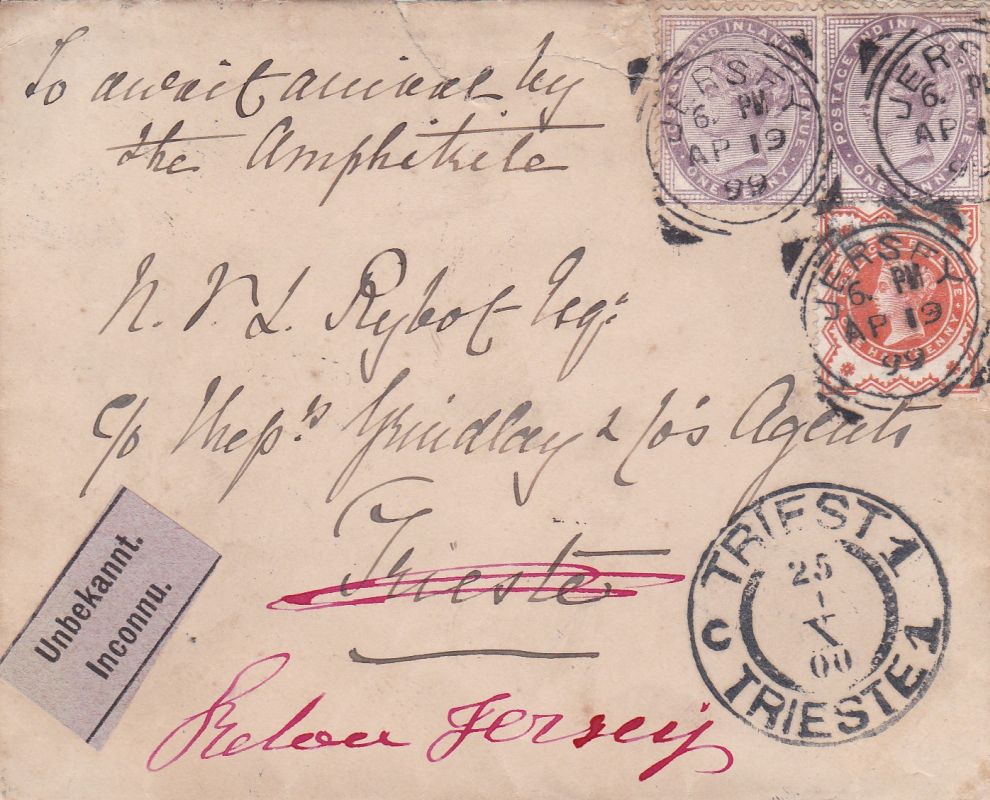 To await arrival by
the Amphitrite
N. V. L. Rybot Esqr
c/o Messrs Grindlay & Co's Agents
Trieste
Retour Jersey
Unbekannt.
Inconnu.
POSTAGE AND INLAND REVENUE
ONE PENNY
JERSEY
6. PM
AP 19
99
POSTAGE AND INLAND REVENUE
ONE PENNY
JERSEY
6. PM
AP
JERSEY
6. PM
AP 19
99
TRIEST 1
25
X
00
C
TRIESTE 1